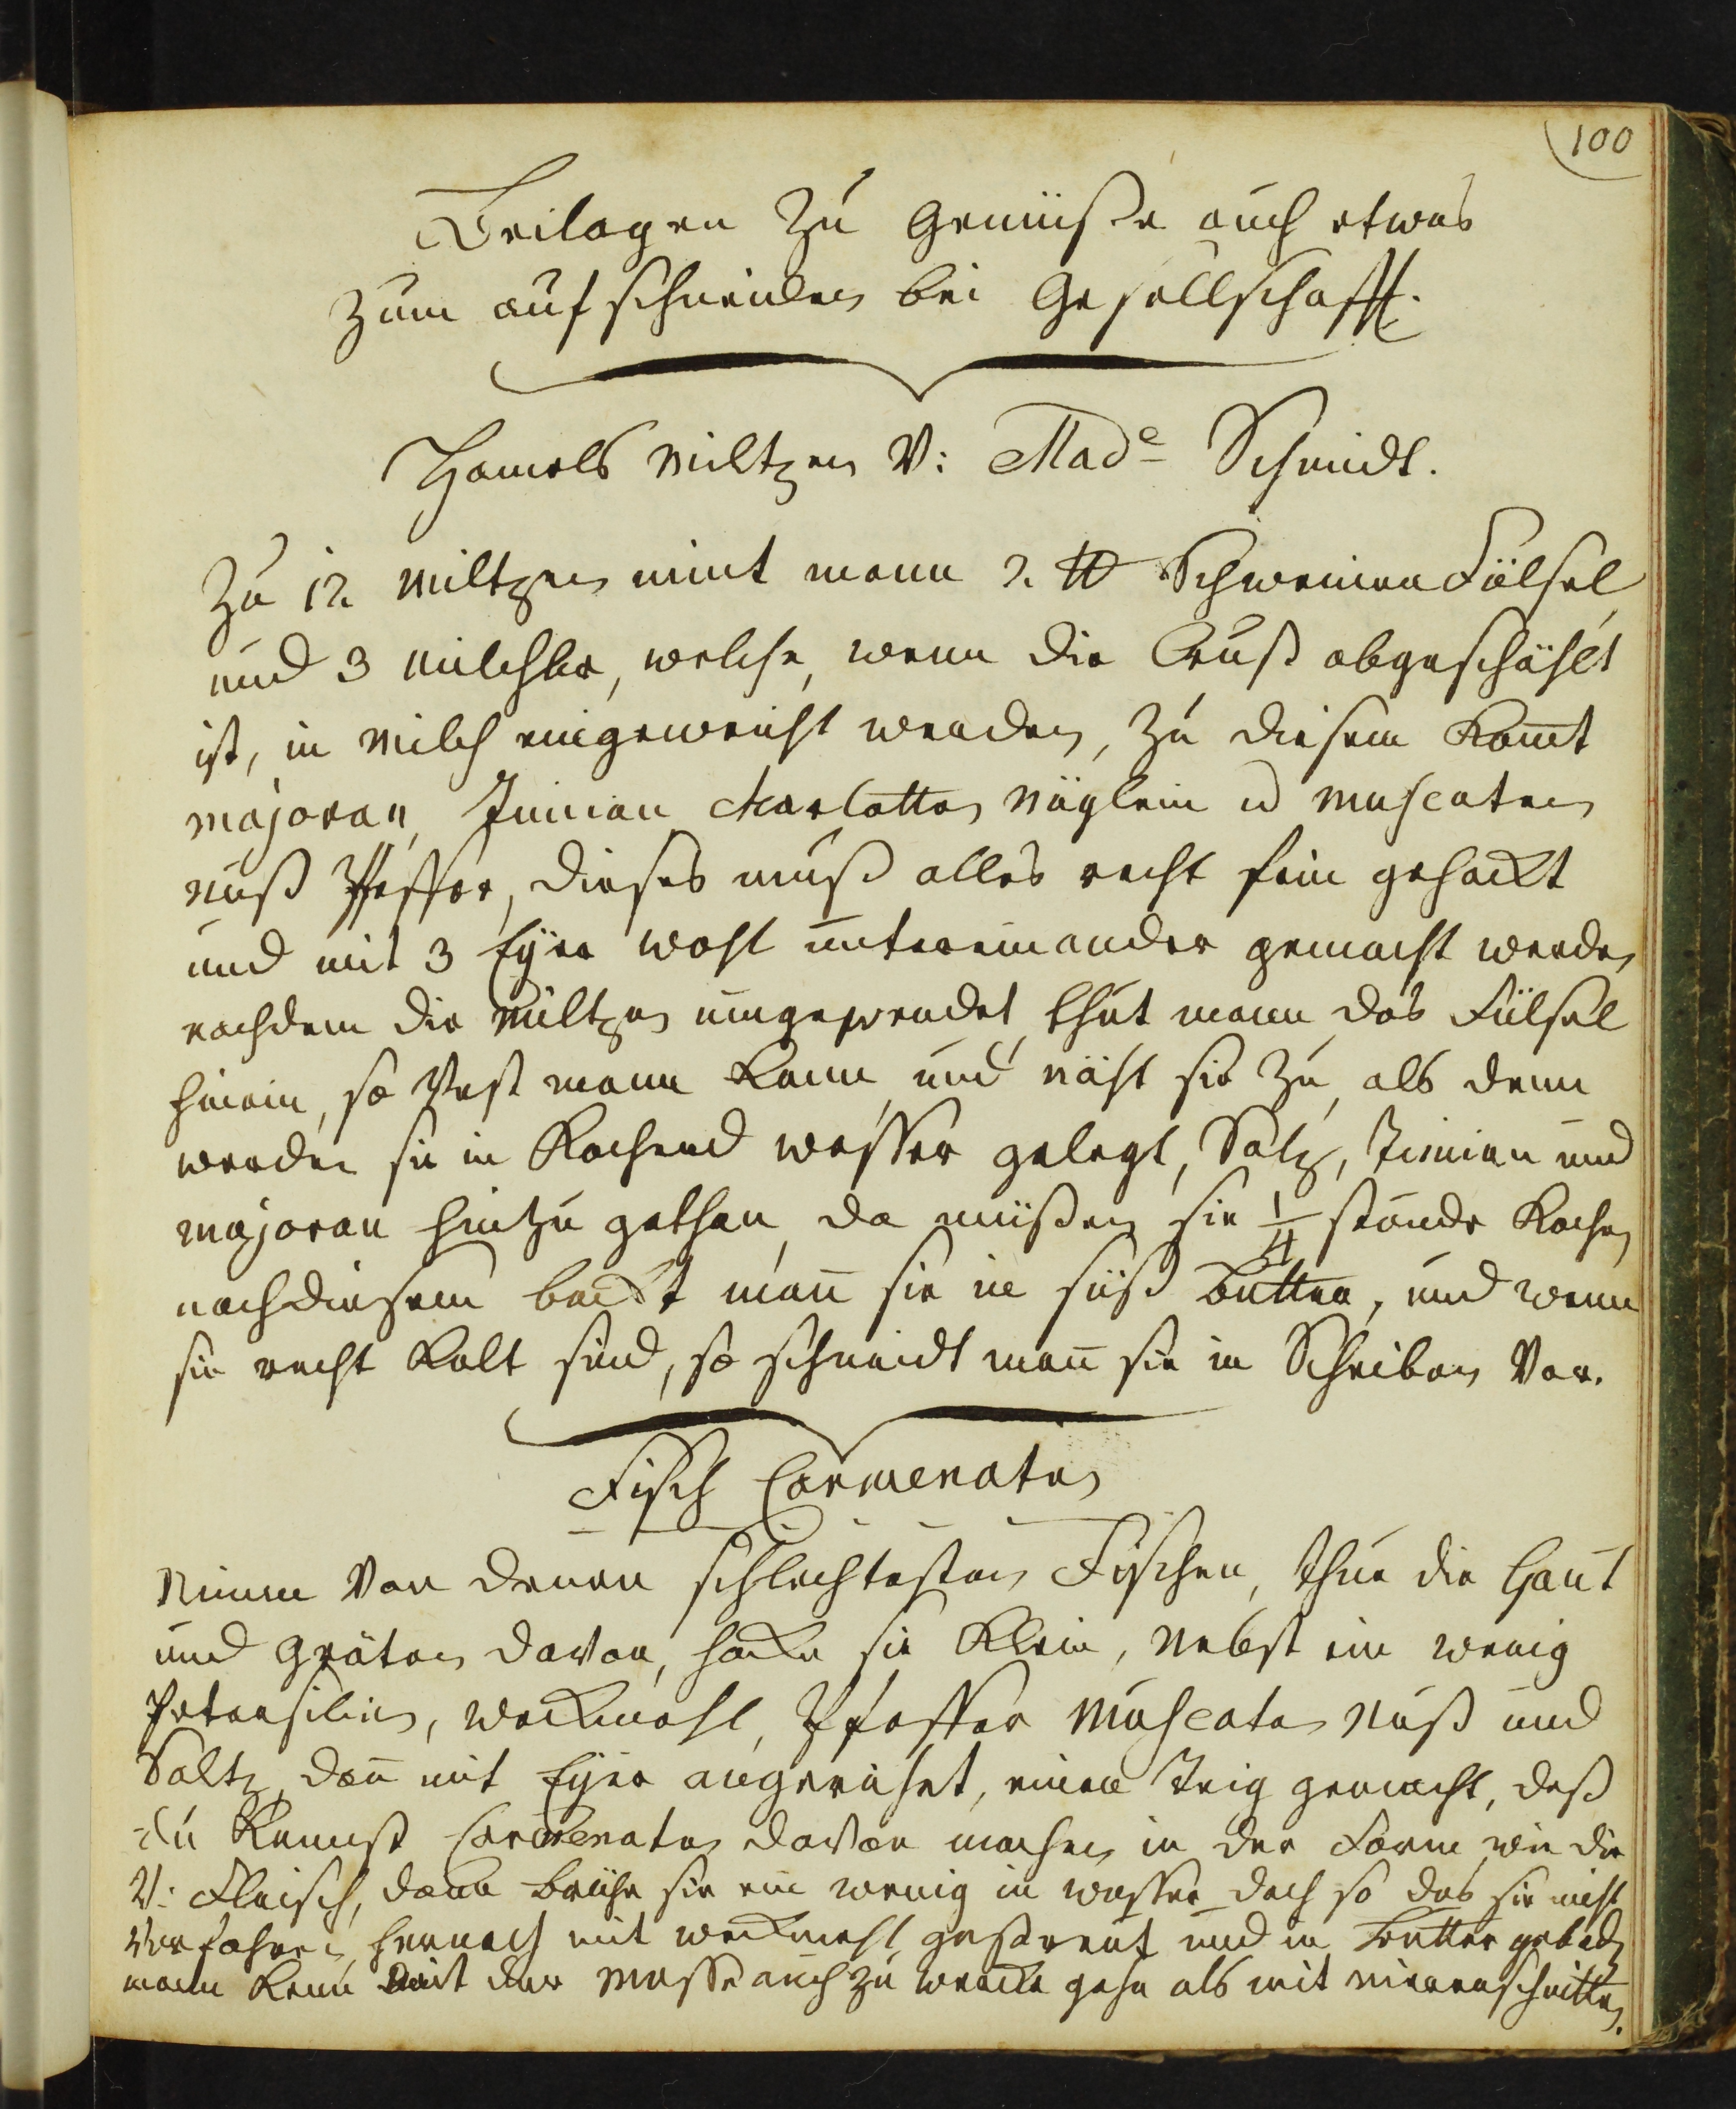 100
Beilagen zu Gemüße auch etwas
zum aufschneiden bei Gesellschafft.
Hamels Miltzen V: Made Schmidt.
Zu 12 Miltzen nimt mann 2 ℔ Schweinen Fülsel
und 3 Milchbr, welche, wenn die Crust abgeschählt
ist, in Milch eingeweicht werden, zu diesem Komt
Majoran, Timian Charlotten Näglein u Muscaten
Nuß Pfeffer, dieses muß alles recht fein gehackt
und mit 3 Eÿer wohl untereinander gemacht werden
nachdem die Miltzen umgewendet, thut mann das Fülsel
hinein, so Vest mann Kann, und näht sie zu, als denn
werden sie in Kochend wasser gelegt, Saltz, Timian und
Majoran hinzu gethan, da müßen sie 1/4 stunde Kochen
nach diesem backt man̄ sie in süß Butter, und wenn
sie recht Kalt sind, so schneidt man̄ sie in Scheiben Vor.
Fisch Carmenaten
Nimm Von denen schlechtesten Fischen, thue die Haut
und Gräten davon, hacke sie Klein, Nebst ein wenig
Petersilien, weckmehl, Pfeffer Muscaten Nuß und
Saltz, dan̄ mit Eÿer angerührt, einen Teig gemacht, daß
du Kannst Carmenaten davon machen in der Form wie die
V: Fleisch, dann brühe sie ein wenig in wasser doch so das sie nicht
Verfahren, hernach mit weckmehl gestreut und in Butter gebacken
mann Kann mit der Masse auch zu wercke gehn als mit Nierenschnitten.